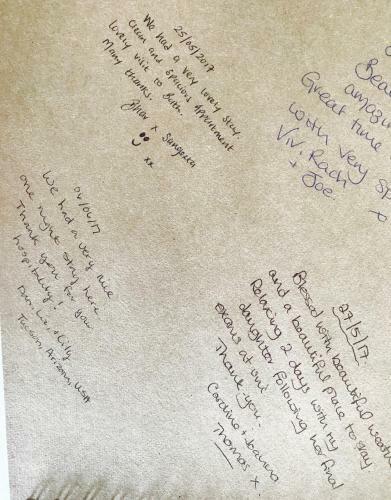 25/05/2017
We had a very lovely stay.
Clean and spacious appartment
lovely visit to Bath.
Many thanks.
x Sangeeta
xx
Beau
amazin
Great time
with very sp
Viv, Rach
+ Joe.
04/06/17
We had a very nice
one night stay here
Thank you for your
hospitality!
Lilly
Tucson, Arizona, USA
27/5/17.
Blessed with beautiful weath
and a beautiful place to stay.
Relaxing 2 days with my
daughter following her final
exams at uni
Thank you.
Caroline +
Thomas x